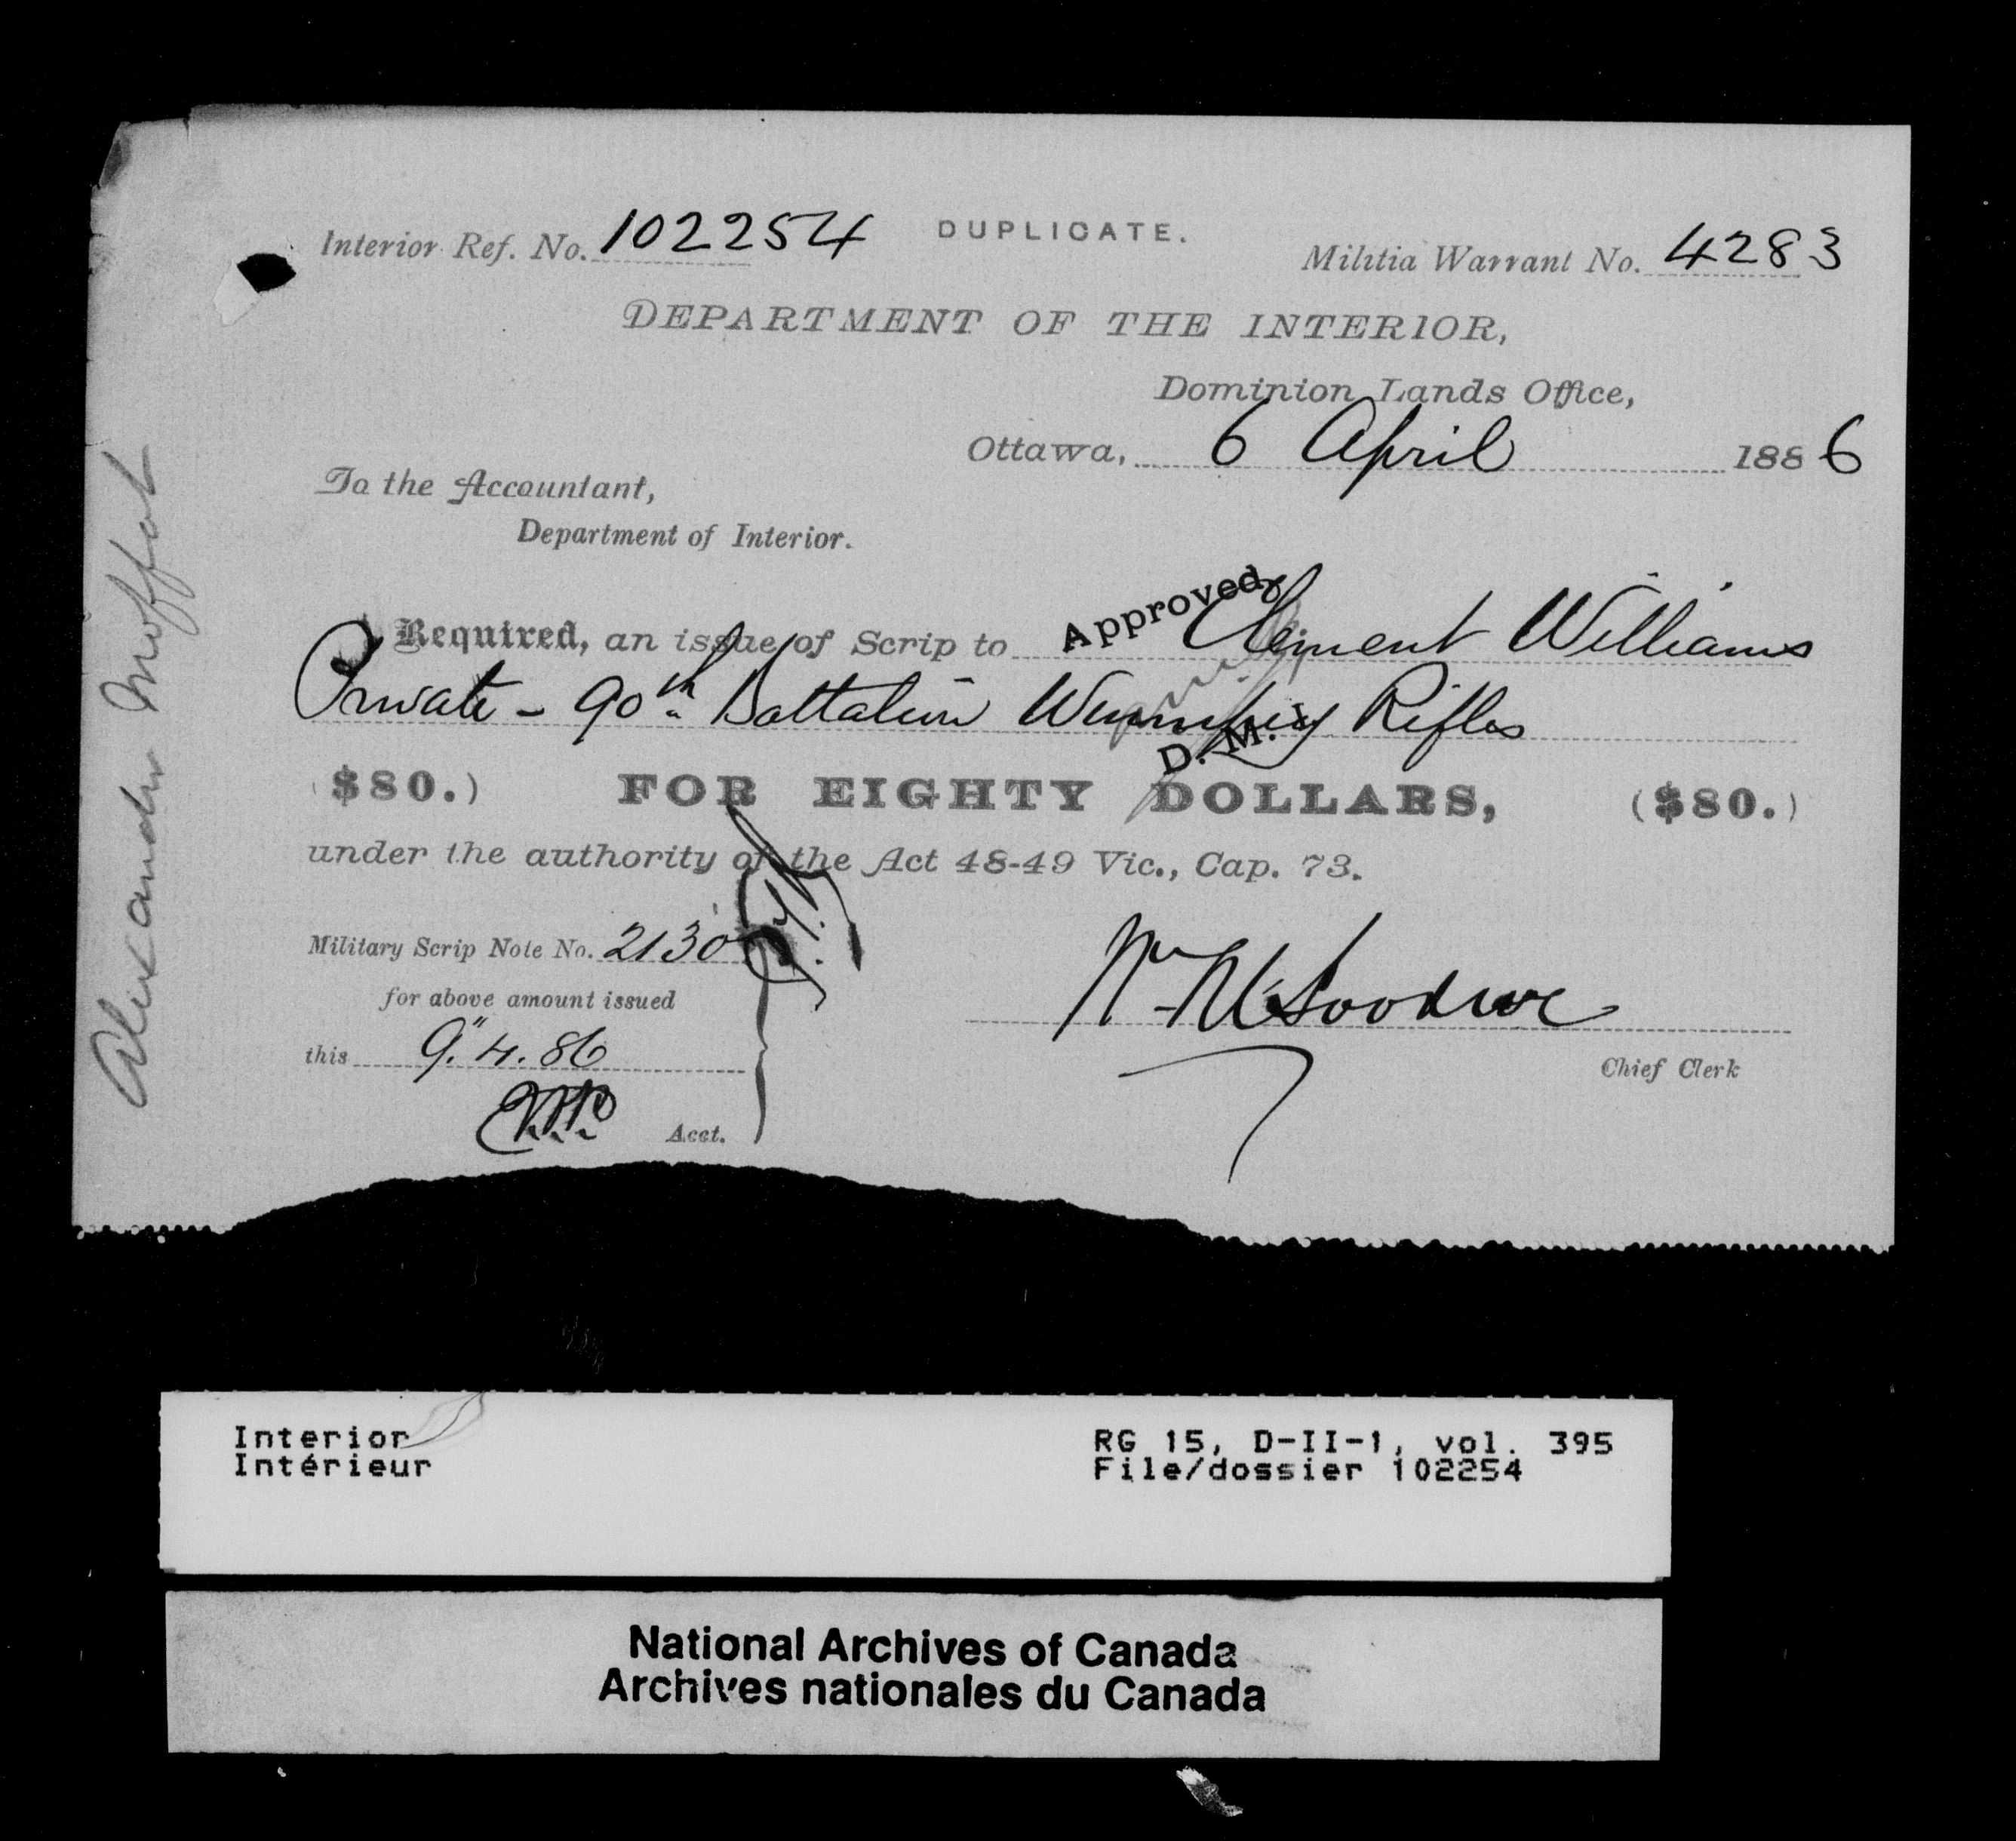 Interior Ref. No. 102254 DUPLICATE. Militia Warrant No. 4283
DEPARTMENT OF THE INTERIOR,
Dominion Lands Office,
Ottawa, 6 April 1886
To the Accountant,
Department of Interior.
Approved
Required, an issue of Scrip to Clement Williams
Private - 90th Battalion Winnipeg Rifles
D. M. I
($80.) FOR EIGHTY DOLLARS, ($80.)
under the authority of the Act 48-49 Vic., Cap. 73.
Military Scrip Note No. 2130
for above amount issued
this 9. 4. 86
Acct.
Chief Clerk
Alexander Moffat
Interior
Intérieur
RG 15, D-II-1, vol. 395
File/dossier 102254
National Archives of Canada
Archives nationales du Canada